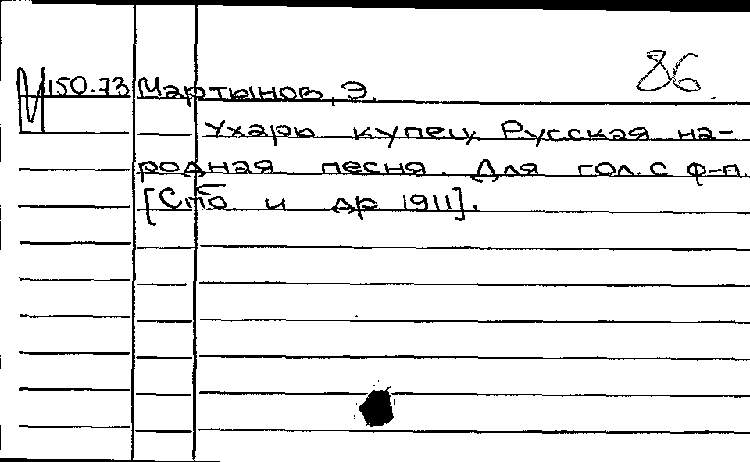 М150.73 Мартынов, Э. 86
Ухарь купец. Русская на-
родная песня. Для гол. с ф-п.
[Спб и др 1911].